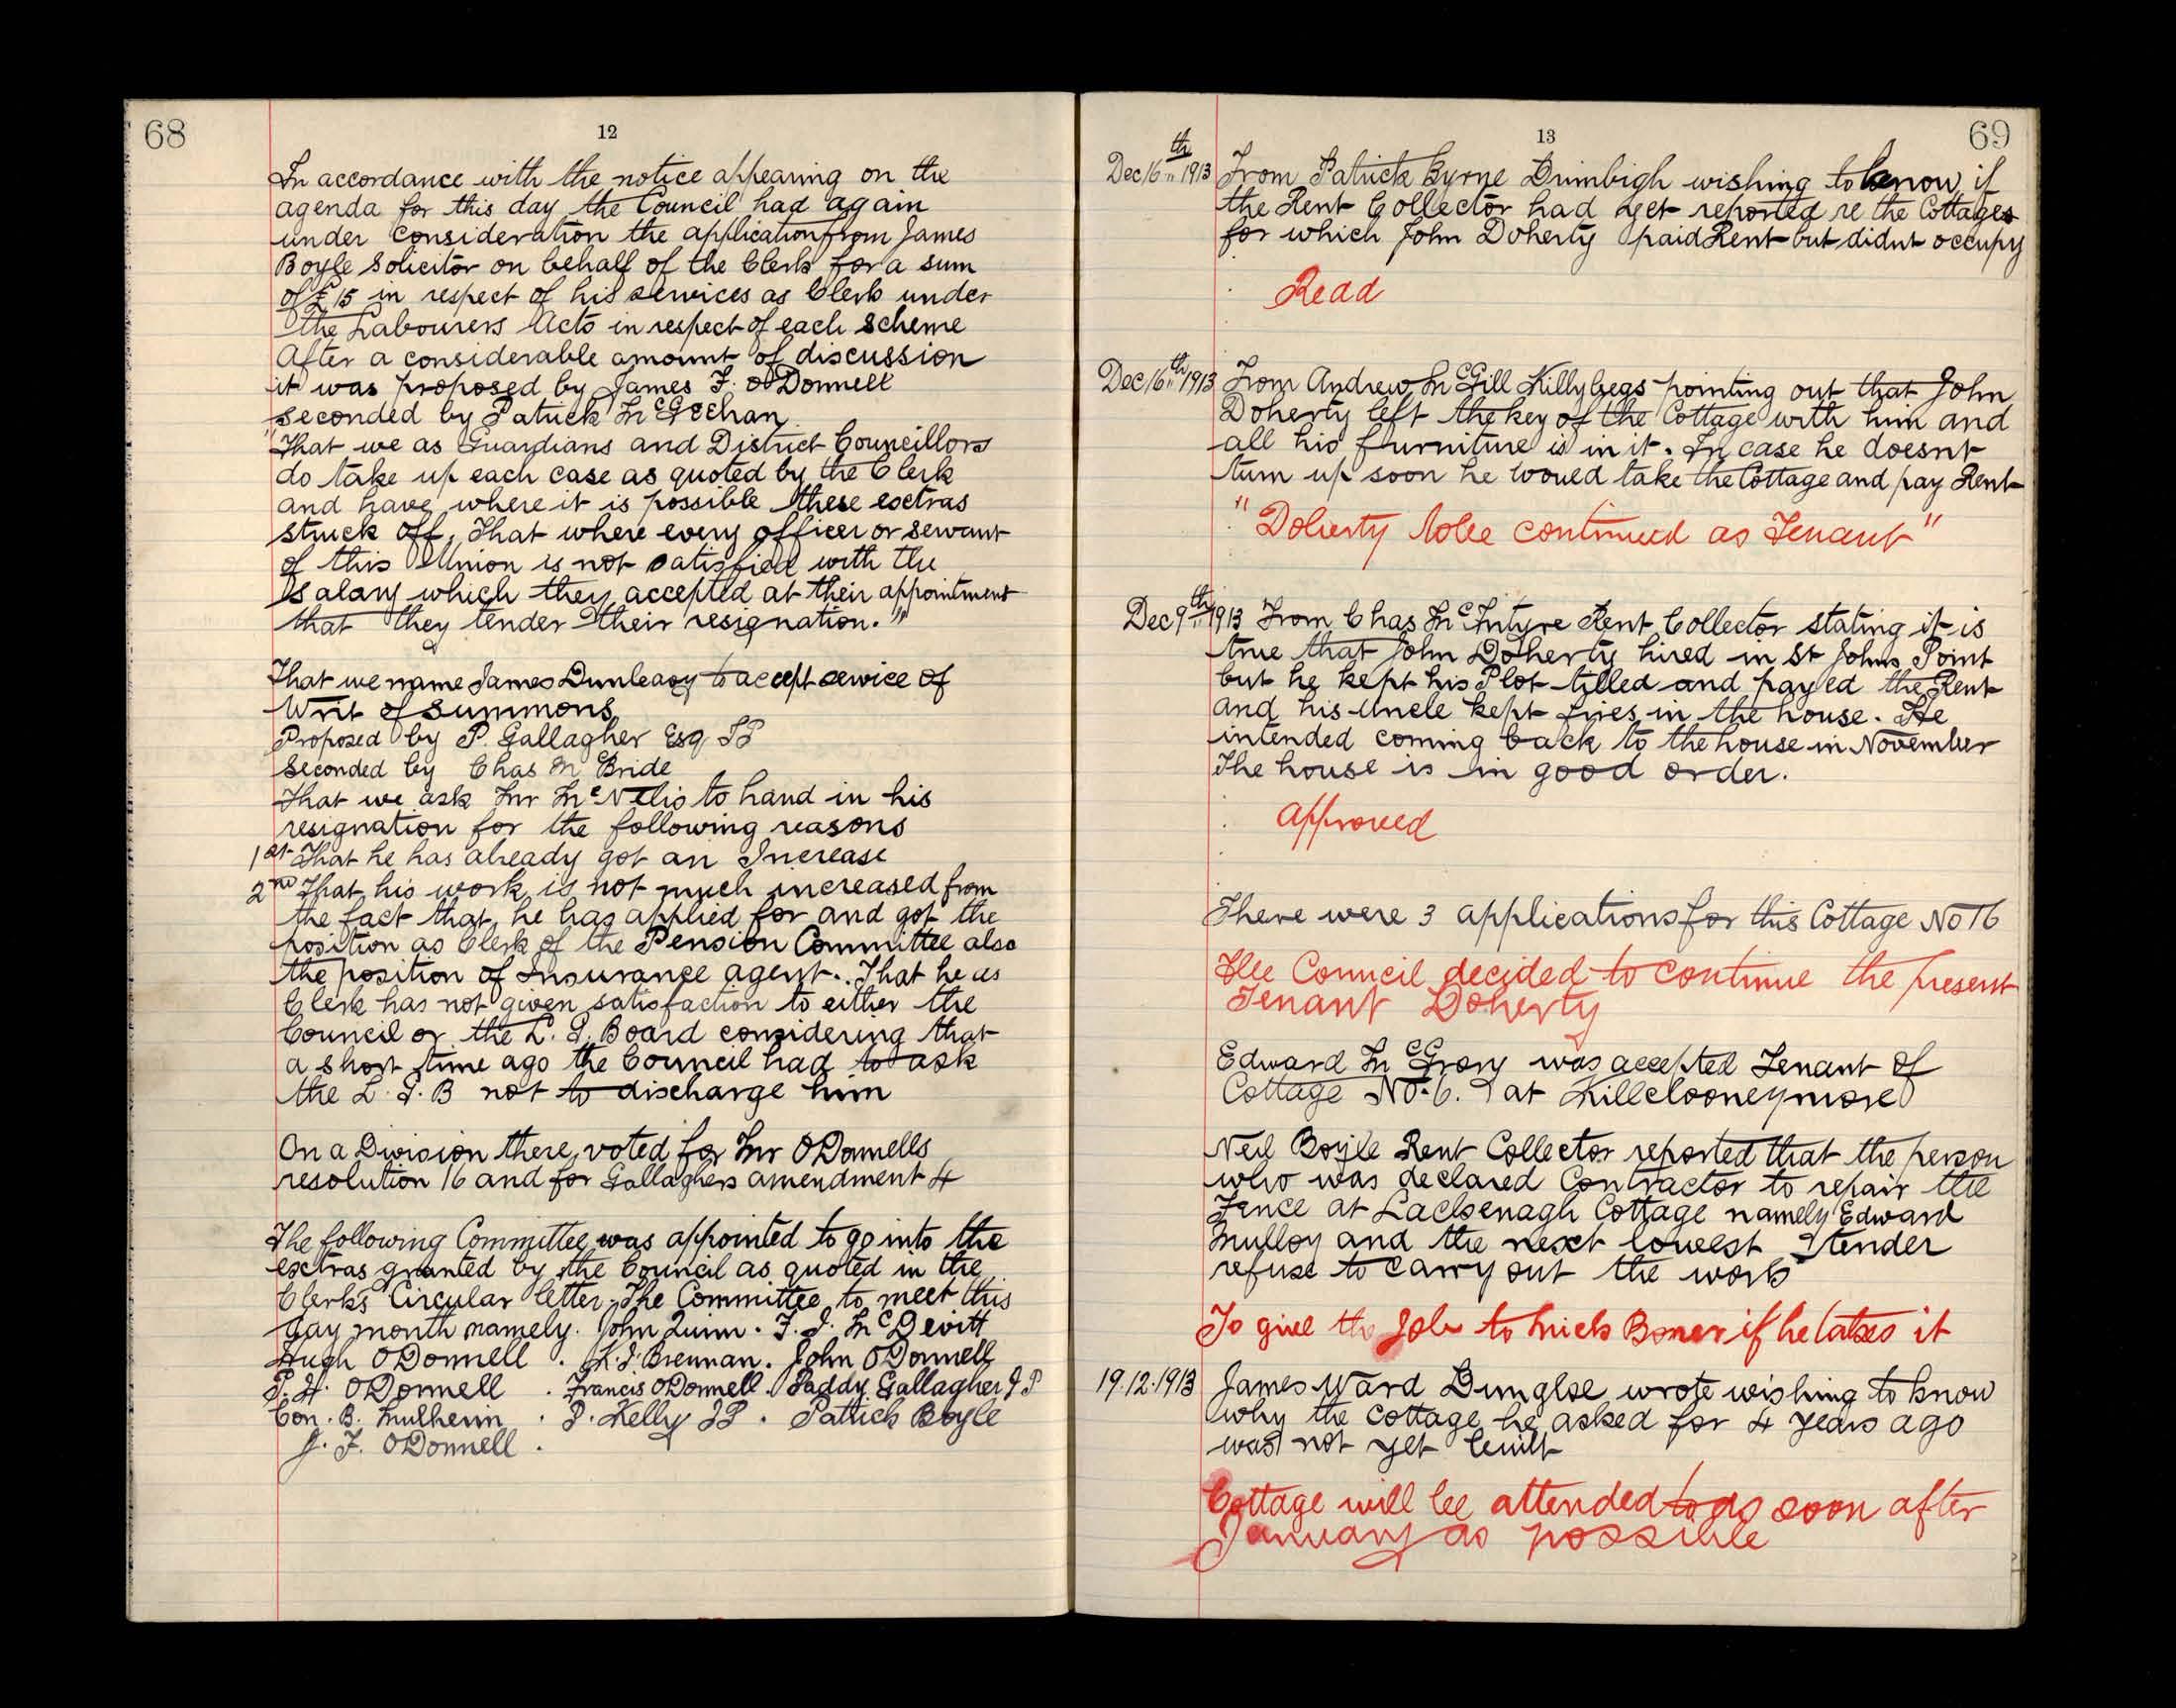 68
12
In accordance with the notice appearing on the
agenda for this day the Council had again
under consideration the application from James
Boyle Solicitor on behalf of the Clerk for a sum
of £15 in respect of his services as Clerk under
the Labourers Acts in respect of each scheme
After a considerable amount of discussion
it was proposed by James F. O'Donnell
seconded by Patrick McGeehan
"That we as Guardians and District Councillors
do take up each case as quoted by the Clerk
and have where it is possible these extras
struck off, That where every officer or servant
of this Union is not satisfied with the
salary which they accepted at their appointment
that they tender their resignation."
That we name James Dunleavy to accept service of
Writ of Summons
Proposed by P. Gallagher Esq JP
Seconded by Chas McBride
That we ask Mr McNelis to hand in his
resignation for the following reasons
1st That he has already got an Increase
2nd That his work is not much increased from
the fact that he has applied for and got the
position as Clerk of the Pension Committee also
the position of Insurance agent. That he as
Clerk has not given satisfaction to either the
Council or the L. G. Board considering that
a short time ago the Council had to ask
the L. G. B not to discharge him
On a Division there voted for Mr O'Donnells
resolution 16 and for Gallaghers amendment 4
The following Committee was appointed to go into the
extras granted by the Council as quoted in the
Clerk's Circular letter. The Committee to meet this
day month namely. John Quinn. F. J. McDevitt
Hugh O'Donnell . K. J. Brennan. John O'Donnell
P. H. O'Donnell . Francis O'Donnell. Paddy Gallagher J P
Con. B. Mulherin . P. Kelly JP . Patrick Boyle
J. F. O'Donnell .
69
13
Dec 16th 1913 From Patrick Byrne Drimbigh wishing to know if
the Rent Collector had yet reported re the Cottages
for which John Doherty paid Rent but didnt occupy
Read
Dec 16th 1913 From Andrew McGill Killybegs pointing out that John
Doherty left the key of the Cottage with him and
all his furniture is in it. In case he doesnt
turn up soon he would take the Cottage and pay Rent
"Doherty to be continued as Tenant"
Dec 9th 1913 From Chas McIntyre Rent Collector stating it is
true that John Doherty hired in St Johns Point
but he kept his Plot tilled and payed the Rent
and his uncle kept fires in the house. He
intended coming back to the house in November
The house is in good order.
Approved
There were 3 applications for this Cottage No 16
The Council decided to continue the present
Tenant Doherty
Edward McGrory was accepted Tenant of
Cottage No. 6. at Killclooneymore
Neil Boyle Rent Collector reported that the person
who was declared Contractor to repair the
Fence at Lackenagh Cottage namely Edward
Mulloy and the next lowest tender
refuse to carry out the work
To give the Job to Mick Boner if he takes it
19.12.1913 James Ward Dungloe wrote wishing to know
why the cottage he asked for 4 years ago
was not yet built
Cottage will be attended to as soon after
January as possible